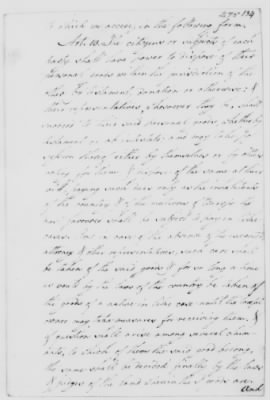 275 134
which in access, in the following form.
Art. 10. The citizens or subjects of each
party shall have power to dispose of their
personal goods within the jurisdiction of the
other by testament, donation or otherwise: &
their representatives, however they
succeed to their said personal goods, whether by
testament or ab intestato: and may take pos-
session thereof either by themselves or by others
acting for them & dispose of the same at their
will, paying such dues only as the inhabitants
of the country
shall be subject to pay in like
cases: and in case of the absence of the
such care shall
be taken of the said goods & for so long a time
as would by the laws of the country be taken of
the goods of a native in like case until the
may take measures for receiving them. &
if question shall arise among several claim-
ants, to which of them the said goods belong,
the same shall be decided finally by the laws
& judges of the land wherein the said goods are.
And